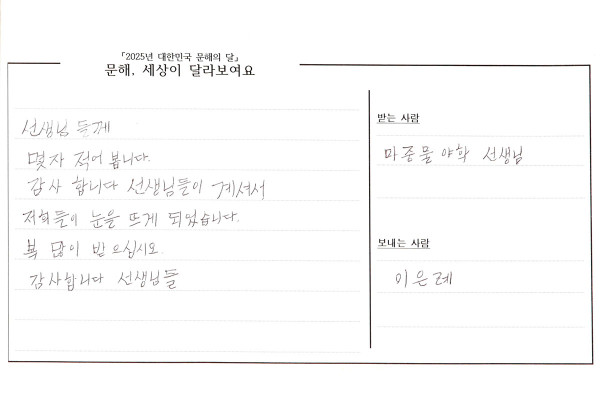 『2025년 대한민국 문해의 달』
문해, 세상이 달라보여요
선생님 들께
몇자 적어 봅니다.
감사 합니다 선생님들이 계셔서
저희들이 눈을 뜨게 되었습니다.
복 많이 받으십시오.
감사합니다 선생님들
받는 사람
마중물 야학 선생님
보내는 사람
이은례